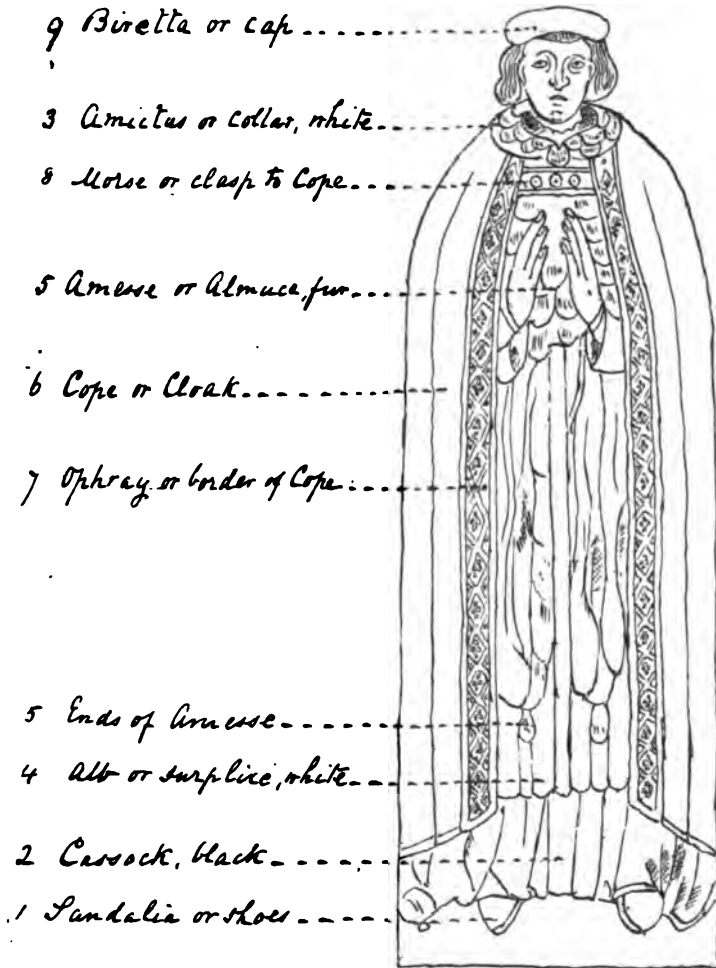 9 Biretta or cap
3 Amictus or collar, white
8 Morse or clasp to Cope
5 Amesse or Almuca, fur
6 Cope or Cloak
7 Ophray or border of Cope
5 Ends of Amesse
4 Alb or surplice, white
2 Cassock, black
1 Sandalia or shoes